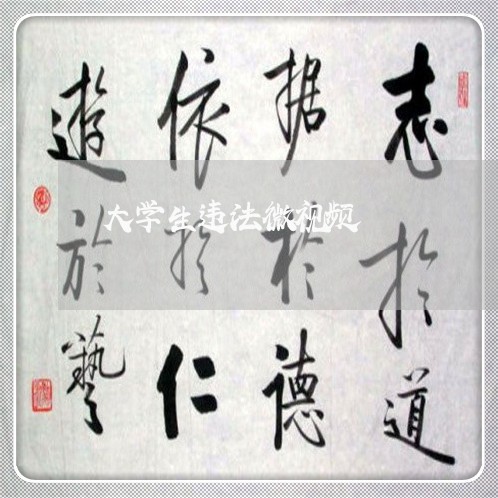 志於道
据於德
依於仁
遊於藝
大学生违法微视频